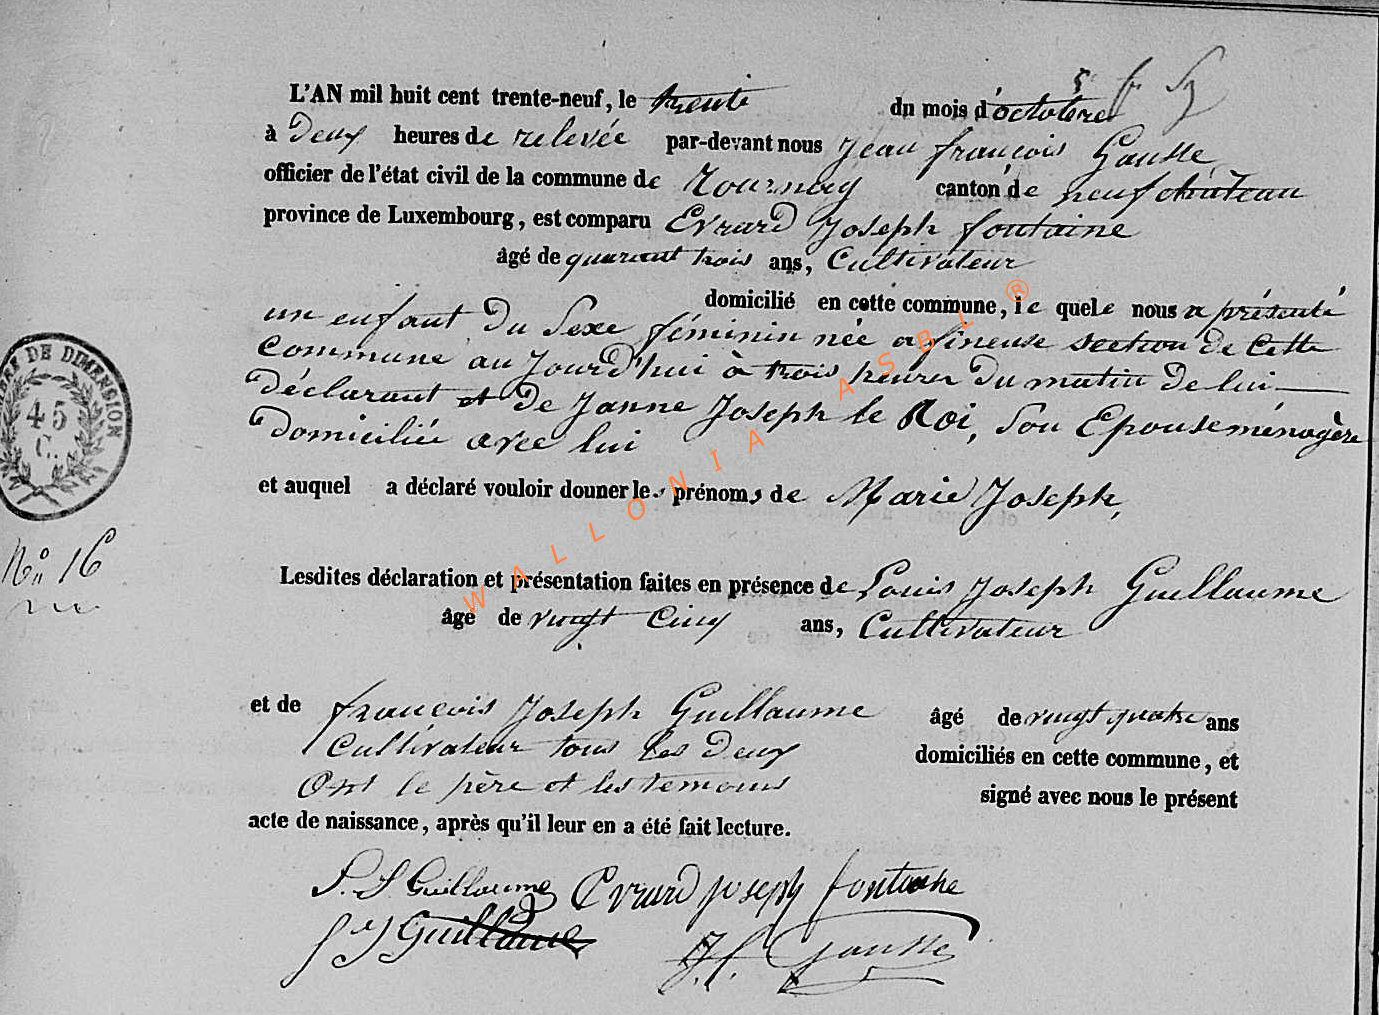 L'AN mil huit cent trente-neuf, le trente du mois d'octobre
à Deux heures de relevée par-devant nous Jean françois Gausse
officier de l'état civil de la commune de Tournay canton de neufchâteau
province de Luxembourg, est comparu Evrard Joseph fontaine
âgé de quarant trois ans, Cultivateur
domicilié en cette commune, le quele nous a présenté
un enfant du Sexe féminin née a fineuse section de Cette
Commune au Jourd'hui à trois heures Du matin De lui
Déclarant et De Janne Joseph le Roi, Son Epouse ménagère
Domiciliée avec lui
et auquel a déclaré vouloir donner les prénoms de Marie Joseph,
Lesdites déclaration et présentation faites en présence de Louis Joseph Guillaume
âgé de vingt Cinq ans, Cultivateur
et de françois Joseph Guillaume âgé de vingt quatre ans
Cultivateur tous les Deux domiciliés en cette commune, et
Ont le père et les temoins signé avec nous le présent
acte de naissance, après qu'il leur en a été fait lecture.
L. J. Guillaume Evrard joseph fontaine
f J Guillaume J. f. Gausse
DE DIMENSION
45
C.
No 16
WALLONIA ASBL ®